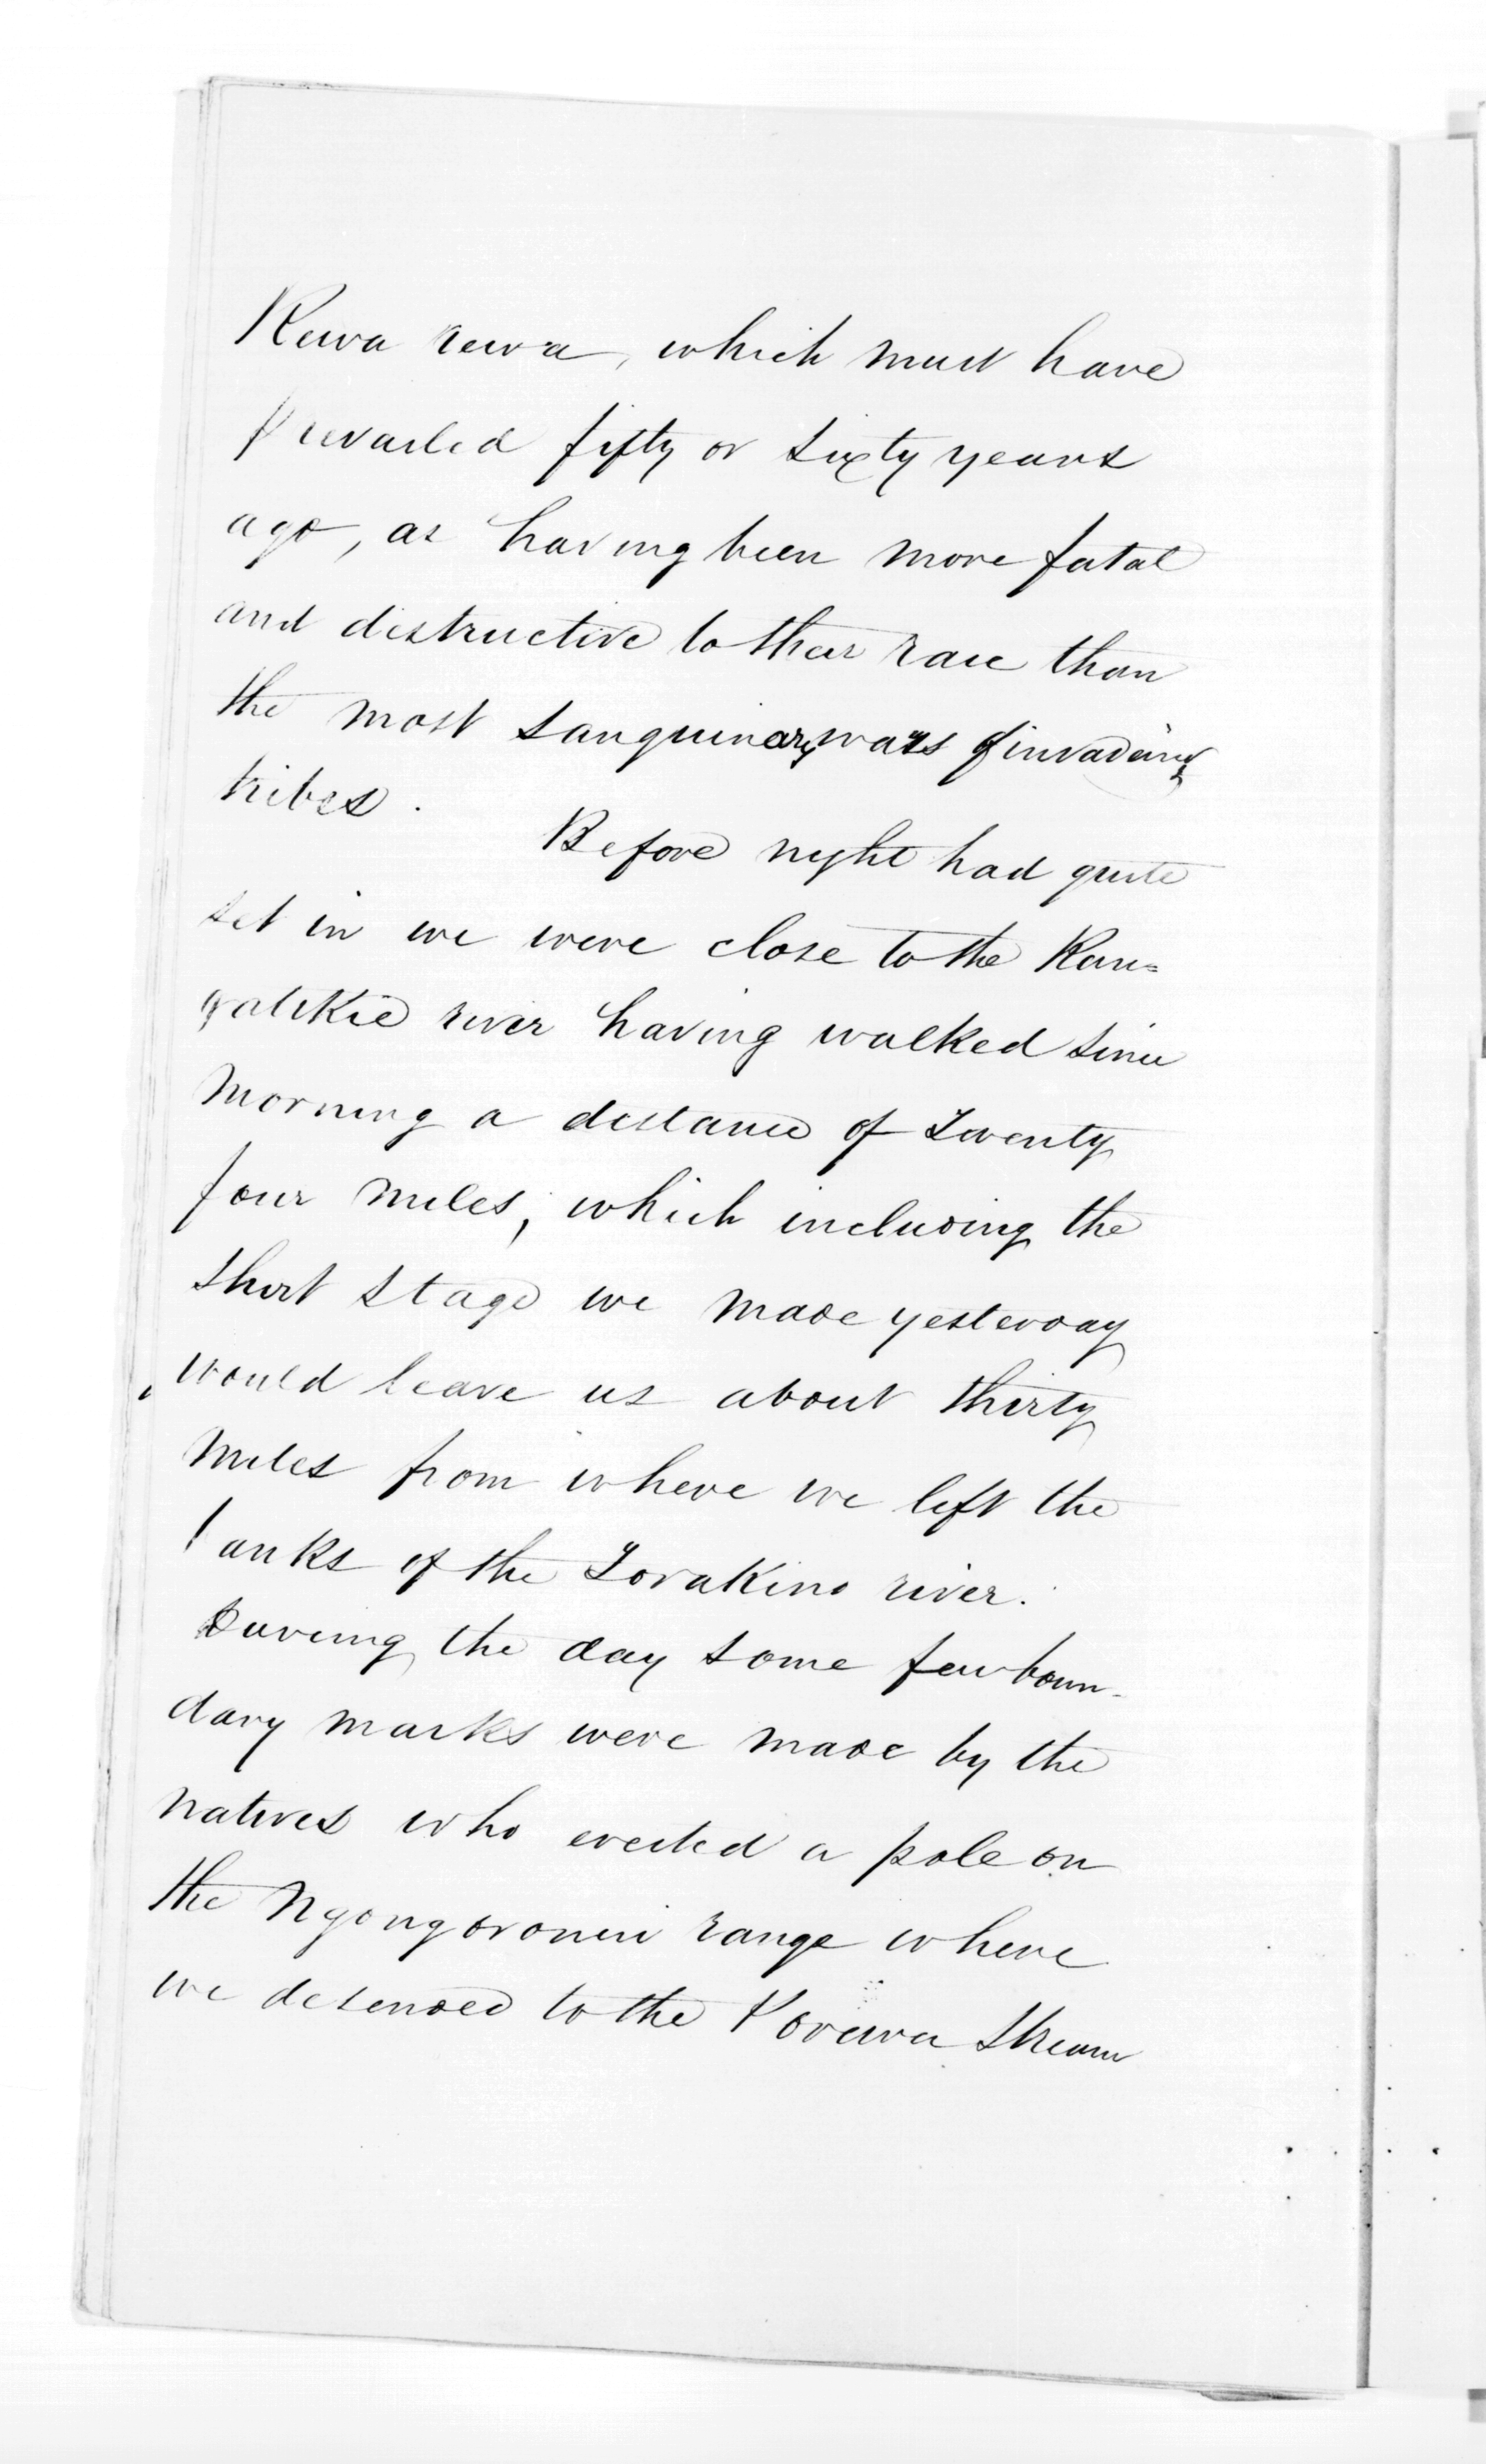 Rewa rewa, which must have
prevailed fifty or sixty years
ago, as having been more fatal
and distructive to their race than
the most sanguinary wars of invading
tribes.
Before night had quite
set in we were close to the Ran=
gatikie river having walked since
morning a distance of Twenty
four miles, which including the
short stage we made yesterday
would leave us about thirty
miles from where we left the
banks of the Torakino river.
During the day some few boun-
dary marks were made by the
natives who erected a pole on
the Ngongoronui range where
we desended to the Porewa Stream